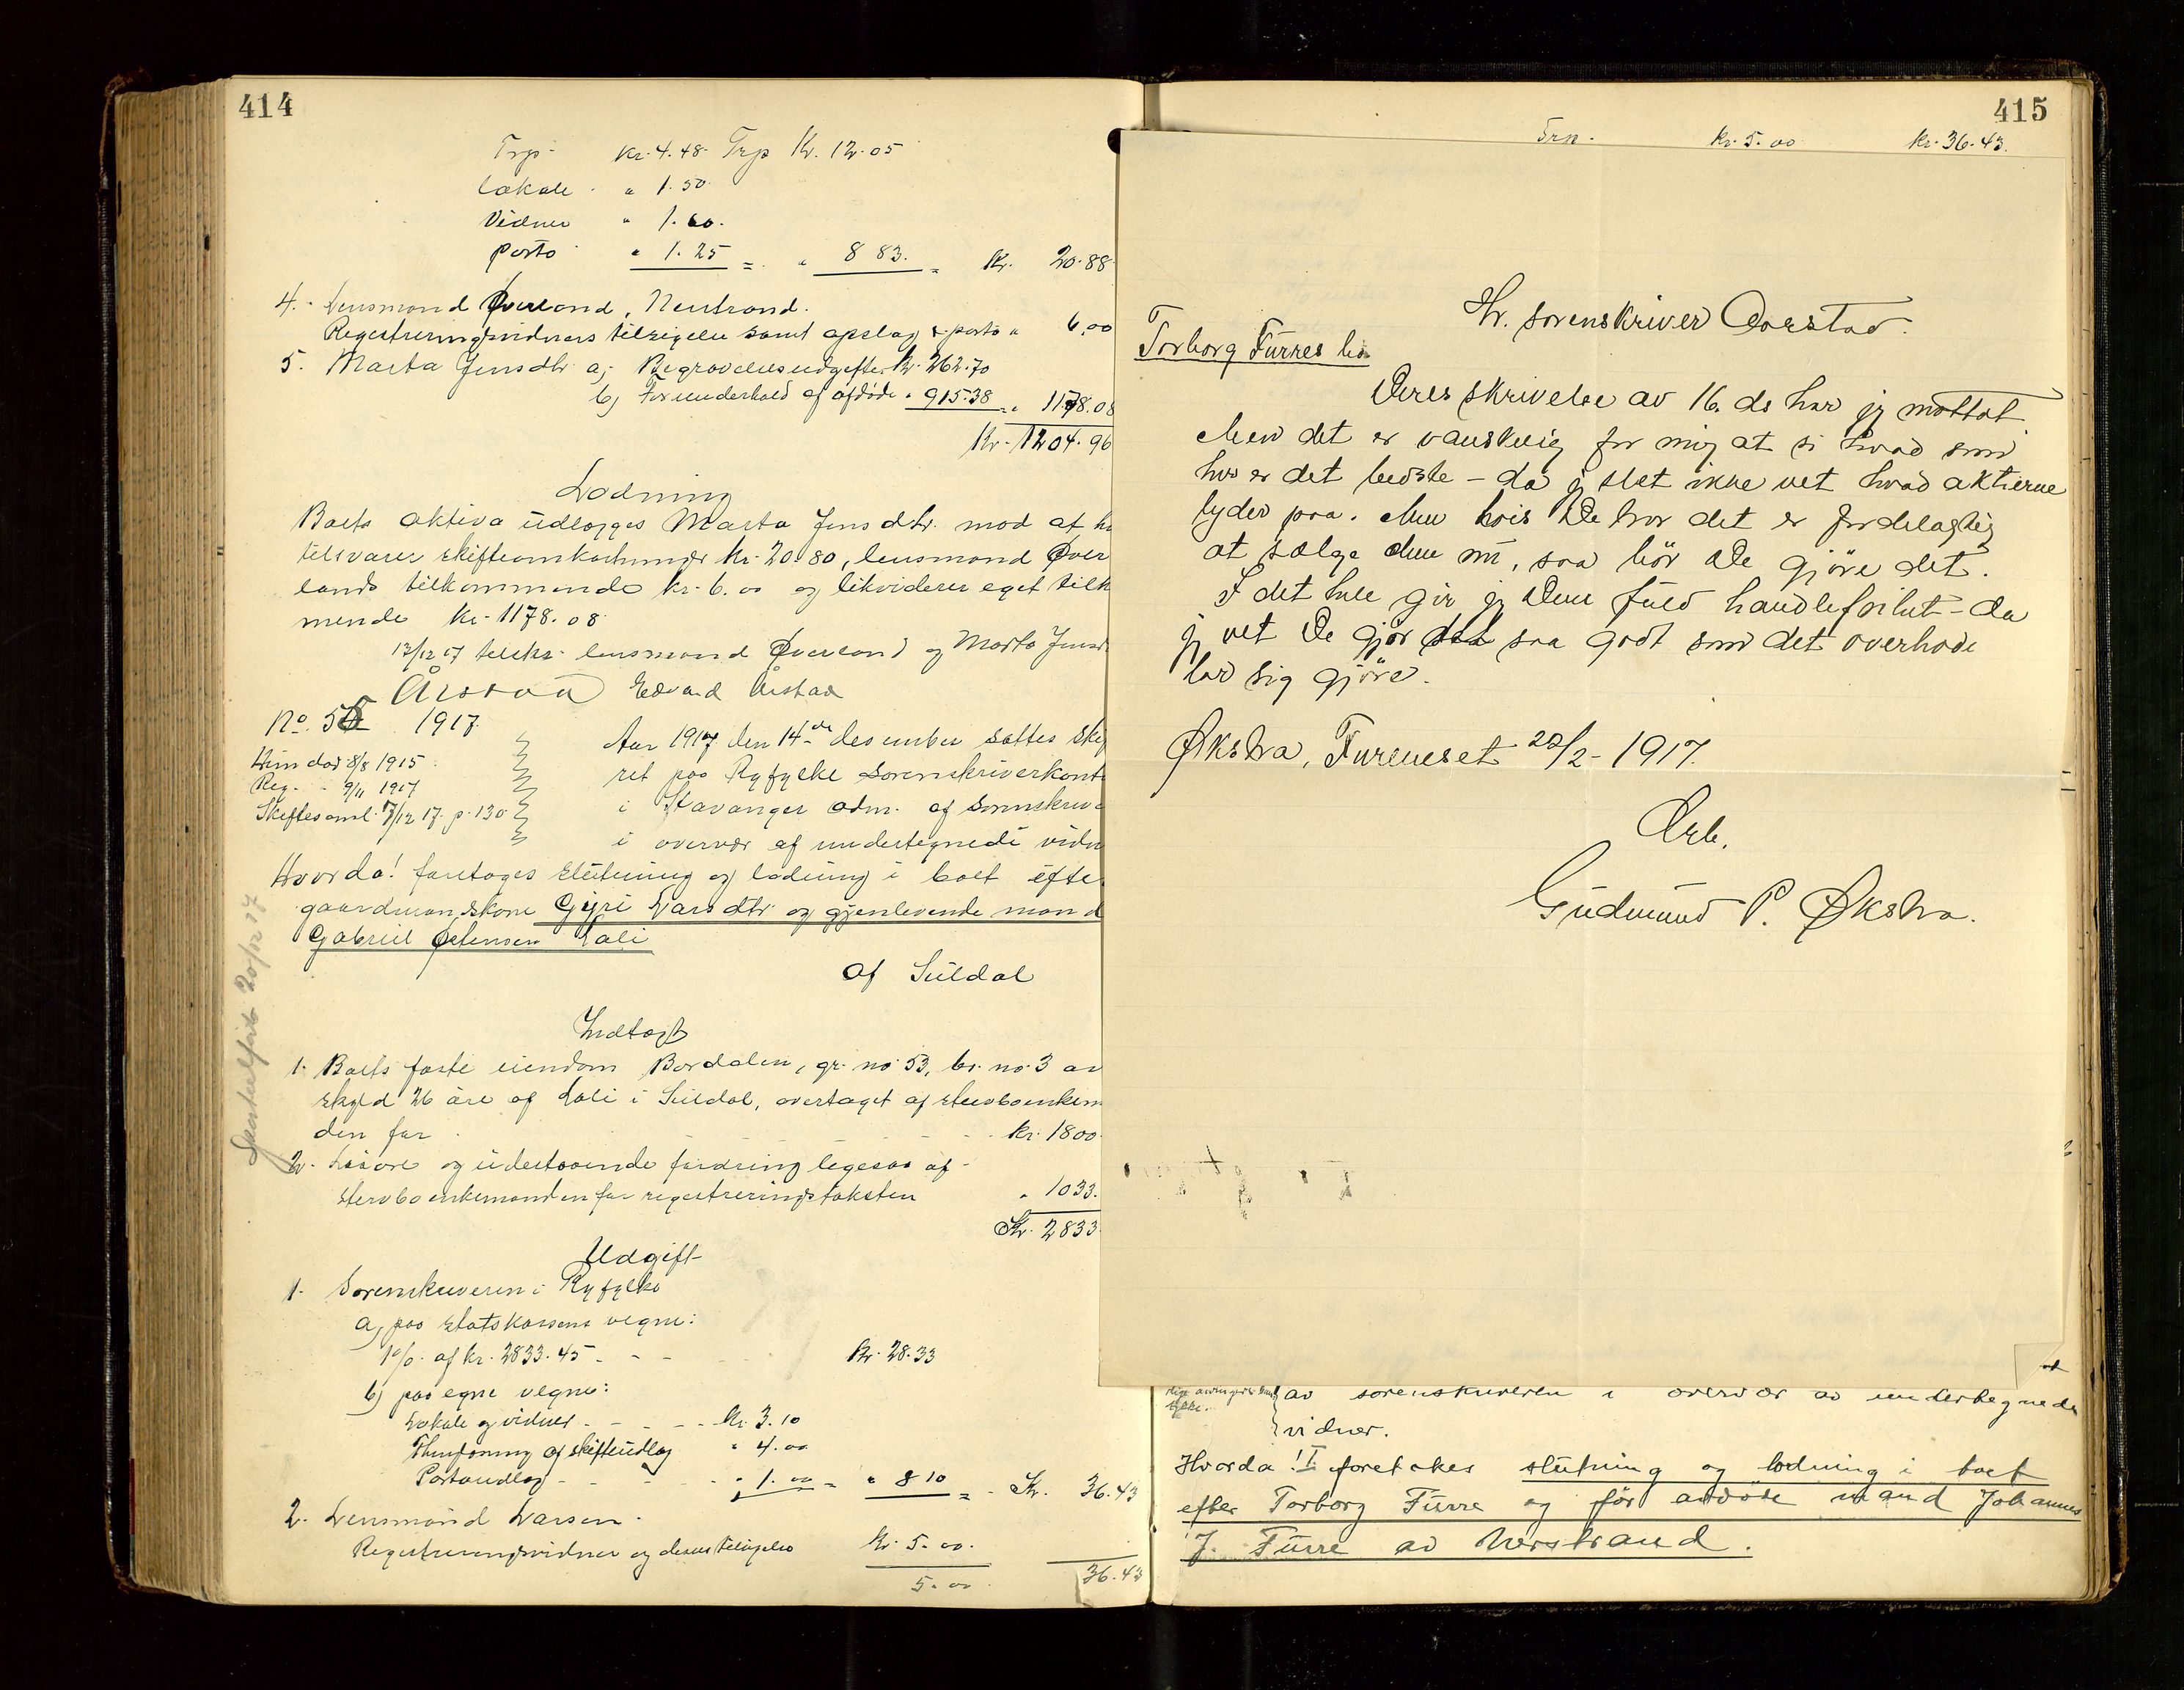 414
Trp. kr. 4.48. Trp Kr. 12.05
Lokale " 1.50.
Vidner " 1.60.
porto " 1.25 = " 8 83. = Kr. 20.88
4. Lensmand Øverland, Nerstrand.
Registreringsvidners tilsigelse samt opslag & porto " 6.00
5. Marta Jensdtr. a, Begravelsesudgifter kr. 262.70
b, For underhold af afdøde " 915.38 = " 1178.08
Kr. 1204.96
Lodning
Boets aktiva udlægges Marta Jensdtr. mod at h
tilsvarer skifteomkostninger kr. 20.80, lensmand Över
lands tilkommende kr. 6.00 og likviderer eget tilk
mende kr. 1178.08
12/12 17 tilskr. lensmand Øverland og Marta Jensd
Årstad Edvard Årstad
No. 55 1917
Hun død 8/8 1915
Reg. 9/11 1917
Skiftesaml. 7/12 17. p. 130
Aar 1917 den 14de desember sattes skif
ret paa Ryfylke sorenskriverkont
i Stavanger adm. af sorenskrive
i overvær af undertegnede vidn
Hvorda! foretoges slutning og lodning i boet efte
gaardmandskone Gyri Larsdtr og gjenlevende mand
Gabriel Østensen Lali
af Suldal
20/12 17
Indtægt
1. Boets faste eiendom Bordalen, gr. no 53, br. no. 3 av
skyld 26 øre af Lali i Suldal, overtaget af stervboenkem
den for kr. 1800.
2. Løsøre og udestaaende fordring ligesaa af
stervboenkemanden for registreringstaksten " 1033.
Kr. 2833.
Udgift
1. Sorenskriveren i Ryfylke
a, paa statskassens vegne:
1% af kr. 2833.45 Kr. 28.33
b, paa egne vegne:
Lokale og vidner kr. 3.10
Thinglysning af skifteudlæg " 4.00
Portoudlæg " 1.00 = " 8 10 = Kr. 36.43
2. Lensmand Larsen.
Registreringsvidner og deres tilsigelse kr. 5.00.
5.00 36.43
415
Trp. kr. 5.00 kr. 36.43.
Hr. sorenskriver Aarstad.
Torborg Furres bo
Deres skrivelse av 16. ds har jeg mottat
Men det er vanskelig for mig at si hvad som
her er det bedste - da jeg slet ikke vet hvad aktierne
lyder paa. Men hvis De tror det er fordelagtig
at sælge dem nu, saa bör De gjöre det.
I det hele gir jeg Dem fuld handlefrihet - da
jeg vet De gjör det saa godt som det overhode
lar sig gjöre.
Økstra, Fureneset 22/2 - 1917.
Ærb.
Gudmund P. Økstra.
av sorenskriveren i overvær av undertegnede
vidner.
Hvorda! I foretokes slutning og lodning i boet
efter Torborg Furre og før avdøde mand Johannes
J. Furre av Nerstrand.